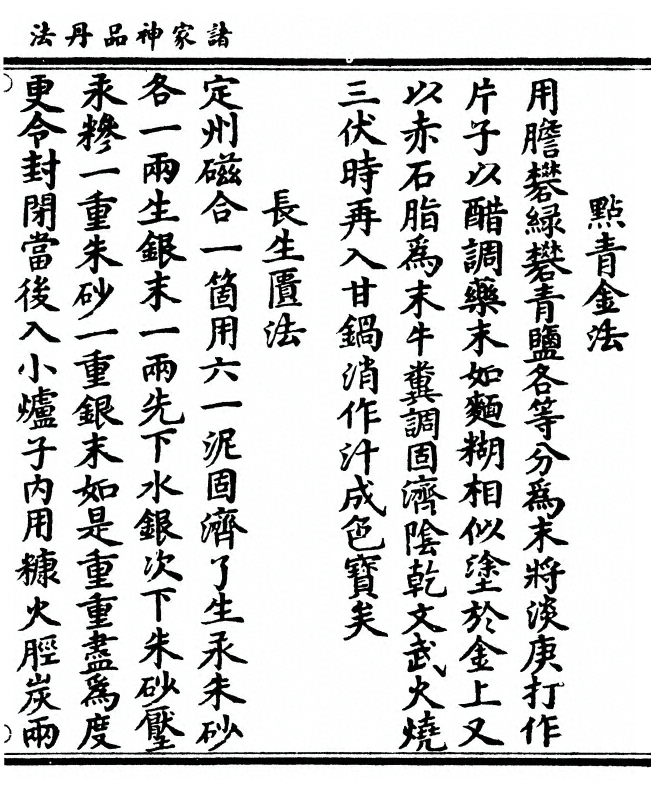 諸家神品丹法
點青金法
用膽礬綠礬青鹽各等分為末將淡庚打作
片子以醋調藥末如麵糊相似塗於金上又
以赤石脂為末牛糞調固濟陰乾文武火燒
三伏時再入甘鍋消作汁成色寶矣
長生匱法
定州磁合一箇用六一泥固濟了生汞朱砂
各一兩生銀末一兩先下水銀次下朱砂壓
汞糝一重朱砂一重銀末如是重重盡為度
更令封閉當後入小爐子內用糠火脛炭兩